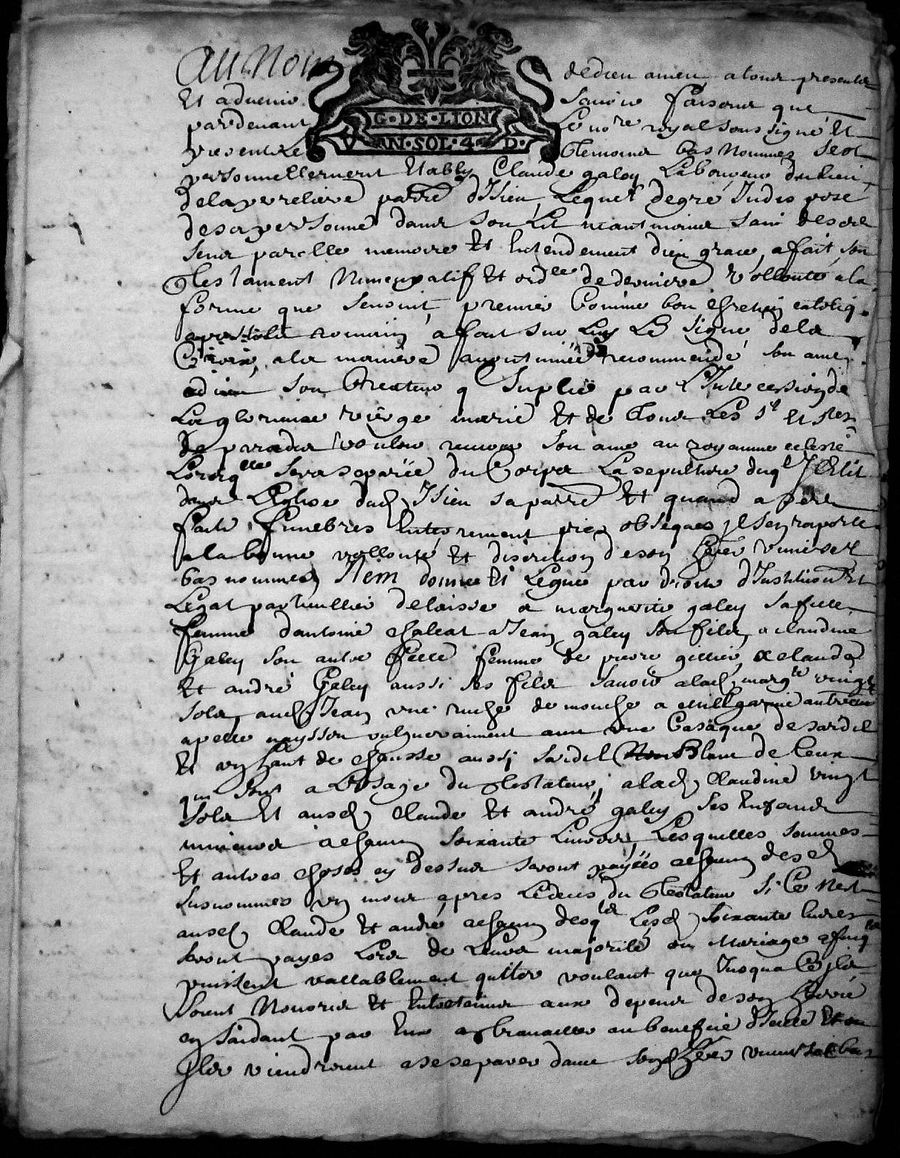 Au Nom de dieu amen a tous presents
Et advenir Savoir faisons que
G. DE. LION
pardevant le no.re royal soussigné et
VN. SOL. 4 D.
presents les tesmoins bas nommes s'est
personnellement Etably Claude galey Laboureur du lieu
de la vereliere parr.e d'Isieu, Lequel de gré Indisposé
de sa personne dans son Lit neantmoins sain de ses
sens parolle memoire et Entendement dieu grace, a fait son
testament Nuncupatif et ord.ce de derniere vollonté a la
forme que sensuit, premier Comme bon chretien catoliq.
apostolic romain, a fait sur luy Le Signe de la
Croix, a la maniere accoutumée recommandé son ame
a dieu son Createur q.l Suplie par L'Intercession de
La glorieuse vierge marie et de tous Les S.ts et s.tes
de paradis vouloir recevoir son ame au royaume celeste
Lorsq.lle sera separée du Corps La sepulture duq.l Il Elit
dans L'Eglise dud. Isieu sa parr.e Et quand a ses
frais funebres Enterrement obseques Il s'en raporte
a la bonne vollonté et discretion de son her.er universel
bas nommé, Item donne et Legue par droit d'Institution et
Legat particullier delaisse a marguerite galey sa fille
femme d'antoine chaleat a Jean galey son fils, a claudine
Galey son autre fille femme de pierre gillier, a claude
Et andré Galey aussi ses fils Savoir a lad. marg.te vingt
sols, aud. Jean une ruche de mouche a miel garnie autrement
apelle vulguerement avec une Casaque de sardil
Et un haut de chausse aussi sardil blanc de Ceux
qui sont a L'usage du testateur, a lad. Claudine vingt
sols Et ausd. Claude Et andré galey ses Enfans
mineurs a chacun soixante Livres, Lesquelles sommes
Et autres choses cy dessus seront payées a chacun desd.
susnommes un mois apres Le deces du testateur Si Ce n'est
ausd. Claude Et andré a chacun desq.ls Lesd. soixante livres
seront payes Lors de Leurs majorité ou Mariage
puissent vallablement quitter voulant que Jusqua Ce Ils
soient Nourris et Entretenus aux depens de son heritié
en s'aidant par Eux a travailler au benefice d'Icelle Et ou
Ils viendroient a se separer dans sond. her.er universel bas